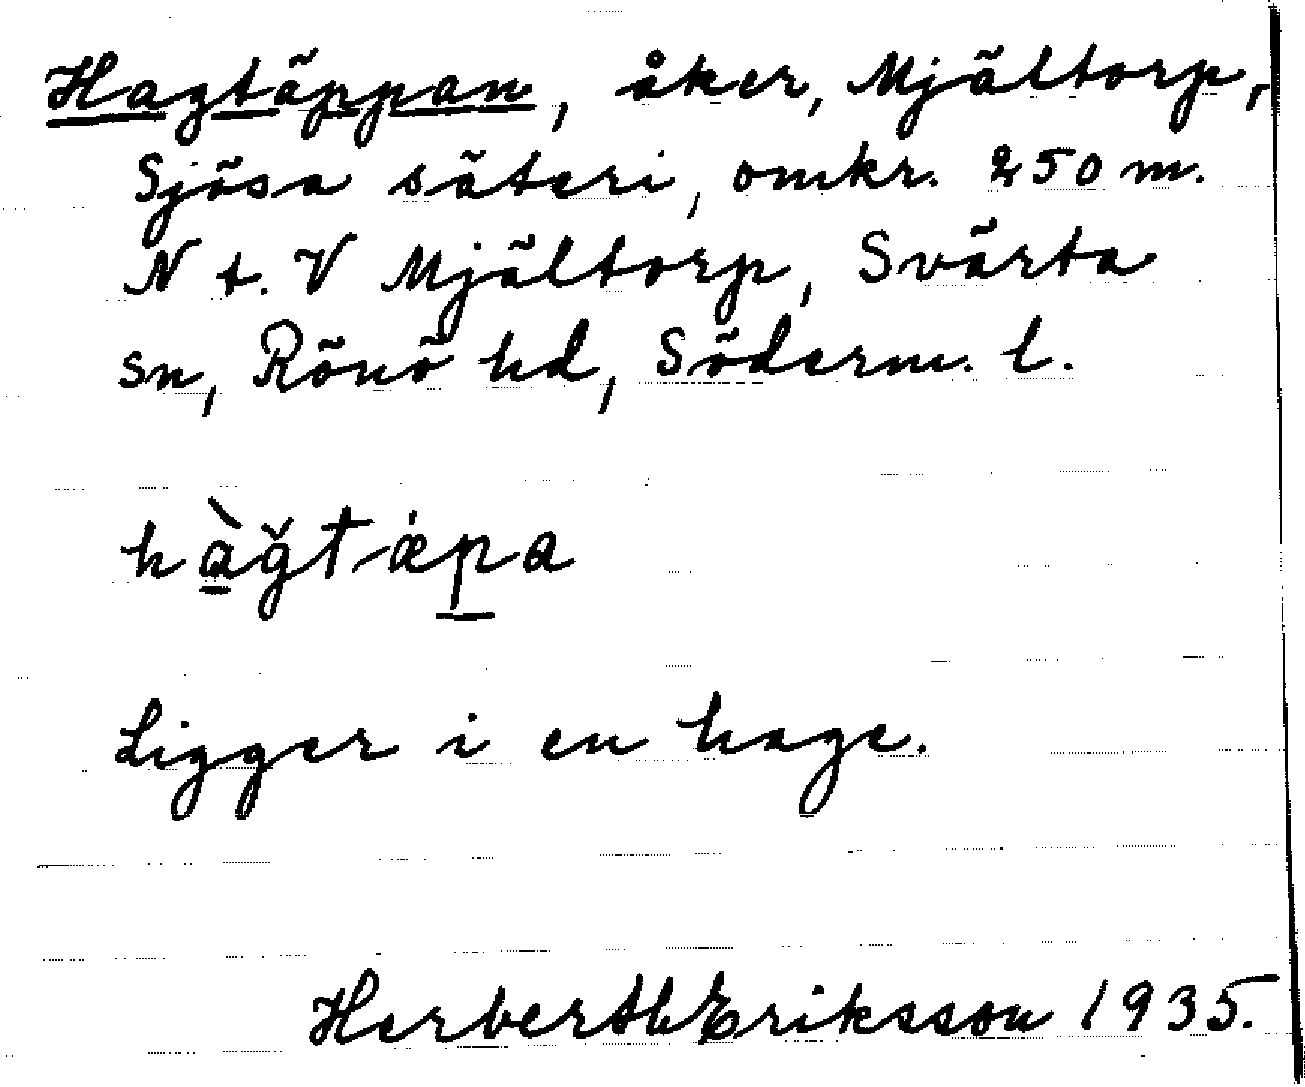 Hagtäppan, åker, Mjältorp,
Sjösa säteri, omkr. 250 m.
N t. V Mjältorp, Svärta
sn, Rönö hd, Söderm. l.
hà̱ğtǽp̱a
Ligger i en hage.
Herberth Eriksson 1935.